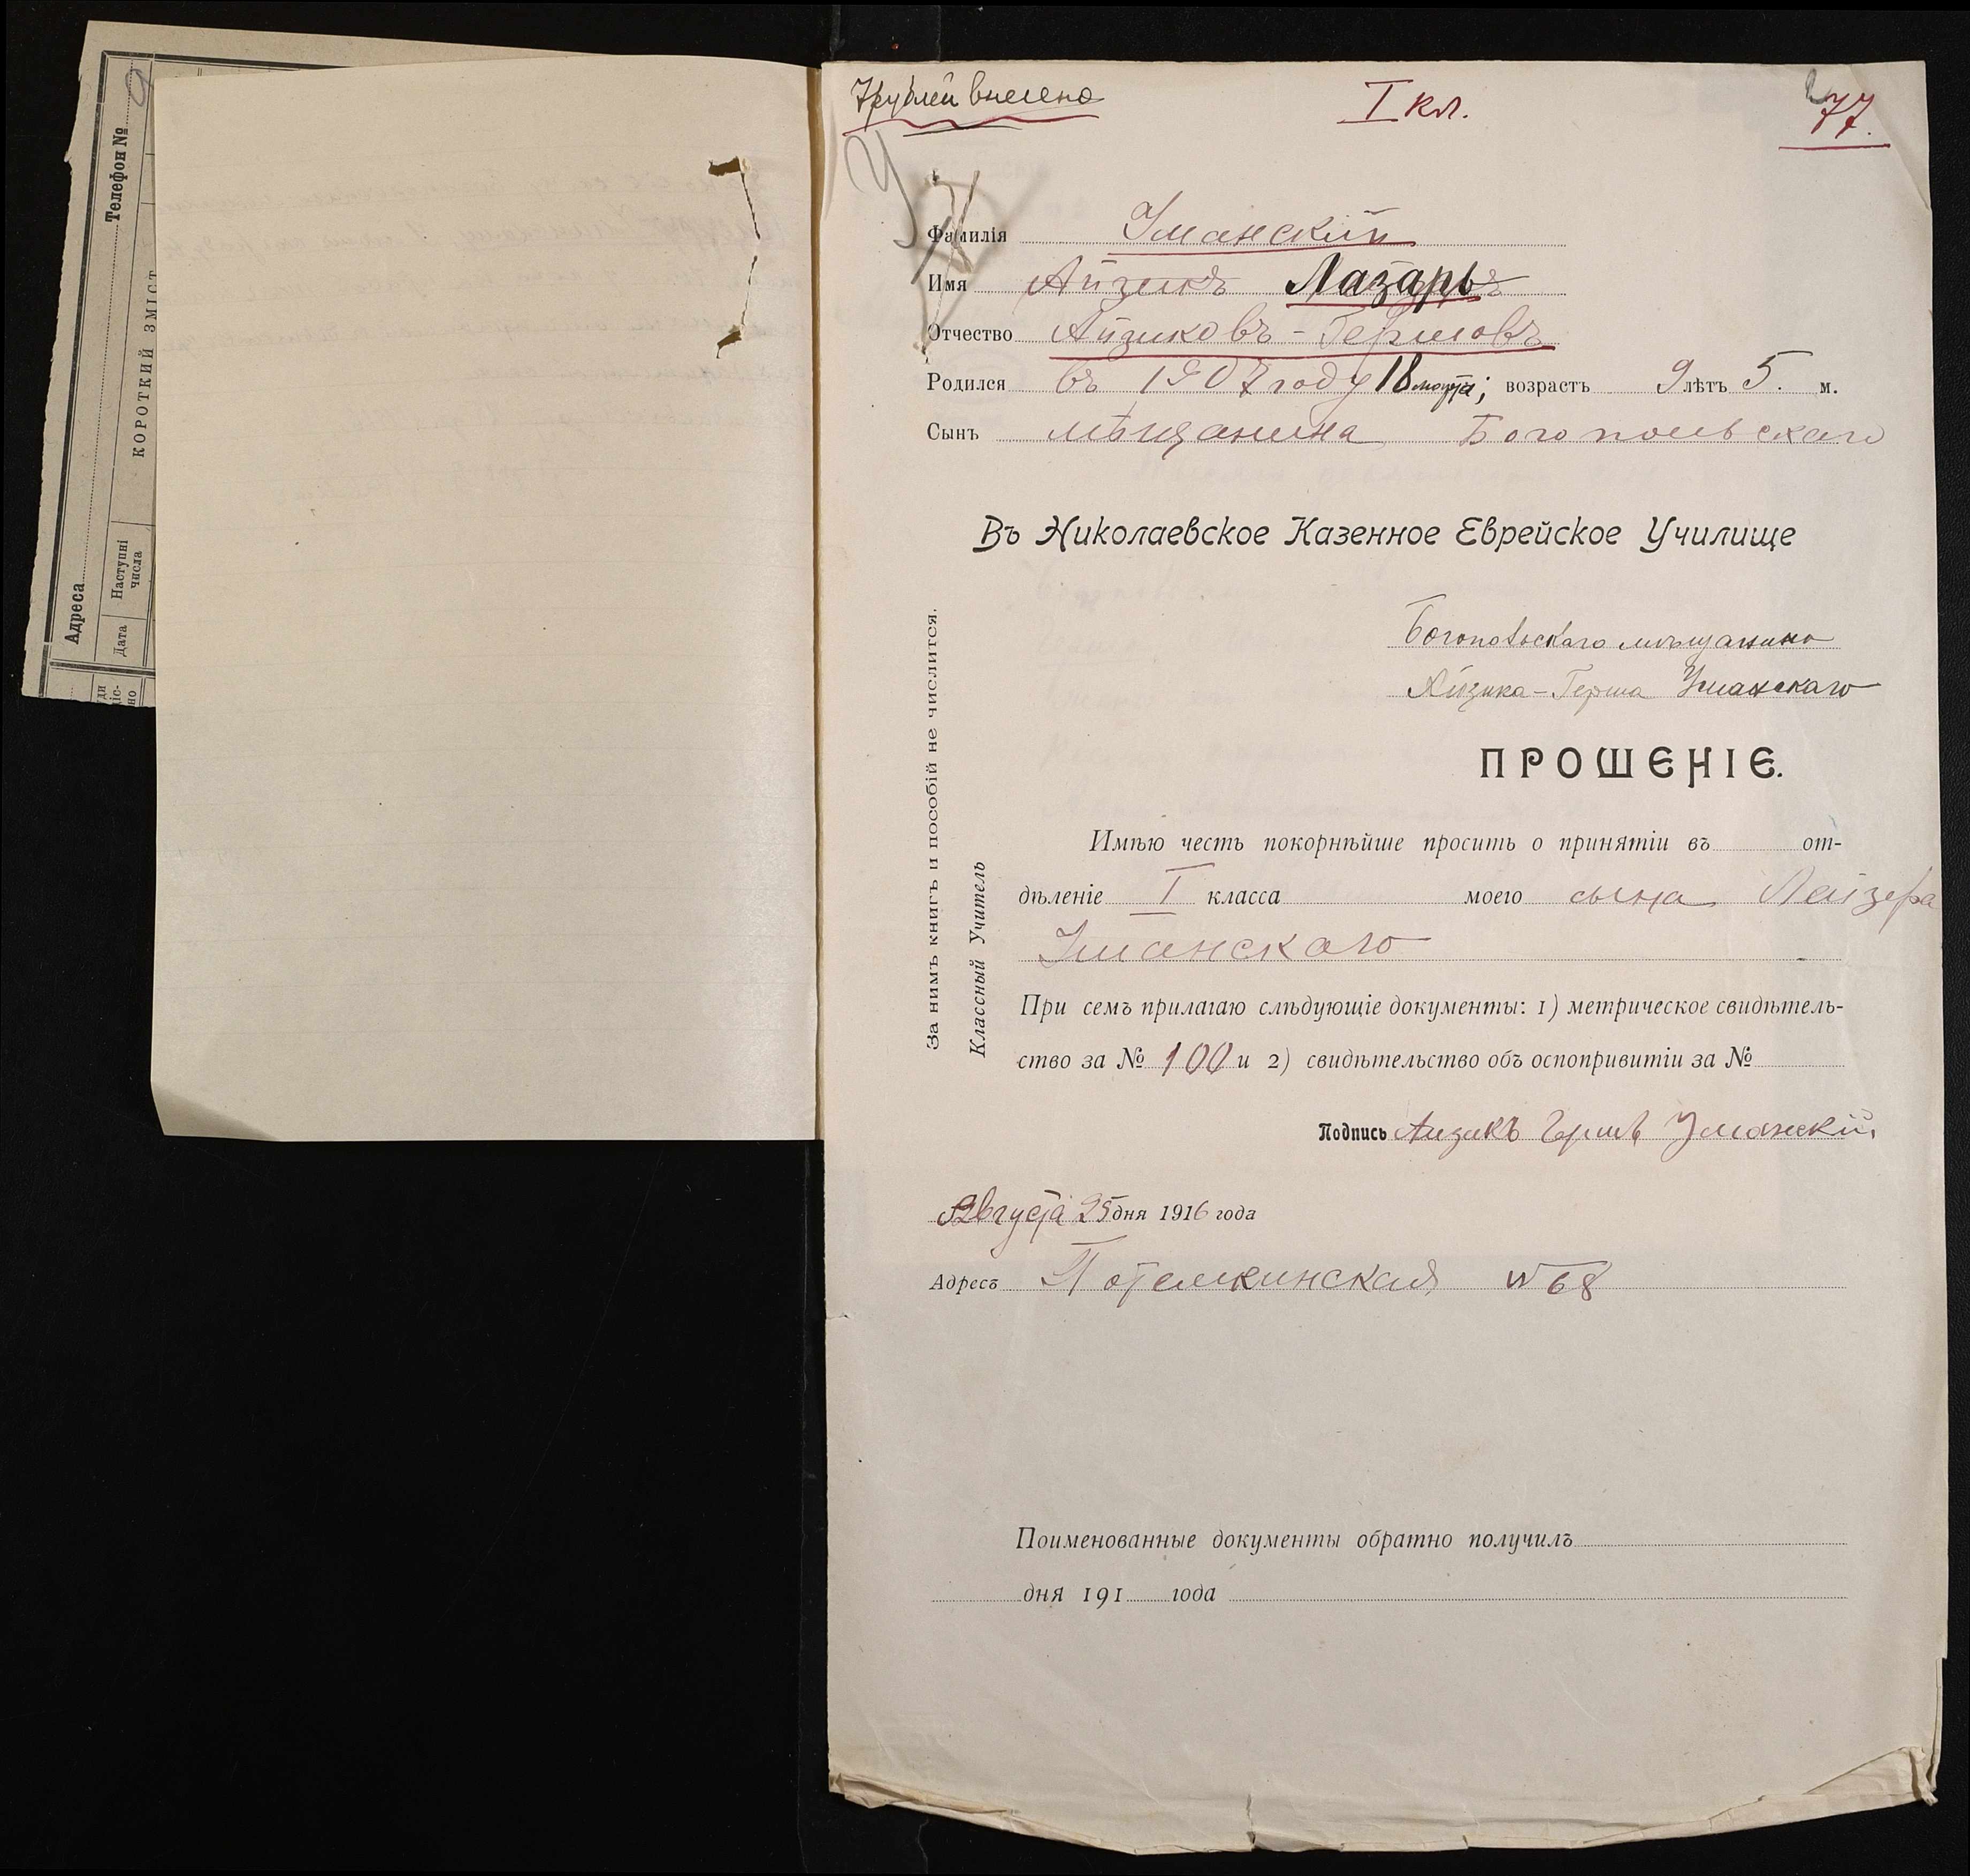 Телефон №
Адреса
КОРОТКИЙ ЗМІСТ
Наступні
числа
Дата
7 рублей внесено
I кл.
77.
Фамилія Уманскій
Имя Лазарь
Отчество Айзиковъ-Гершовъ
Родился въ 1907 году 18 марта; возрастъ 9 лѣтъ 5. м.
Сынъ мѣщанина Богопольскаго
Въ Николаевское Казенное Еврейское Училище
Богопольскаго мѣщанина
Айзика-Герша Уманскаго
ПРОШЕНІЕ.
Имѣю честь покорнѣйше просить о принятіи въ от-
дѣленіе I класса моего сына Лейзера
Уманскаго
При семъ прилагаю слѣдующіе документы: 1) метрическое свидѣтель-
ство за № 100 и 2) свидѣтельство объ оспопривитіи за №
Подпись Айзикъ Гершъ Уманскій
Августа 25 дня 1916 года
Адресъ Потемкинская № 68
За нимъ книгъ и пособій не числится.
Классный Учитель
Поименованные документы обратно получилъ
дня 191 года